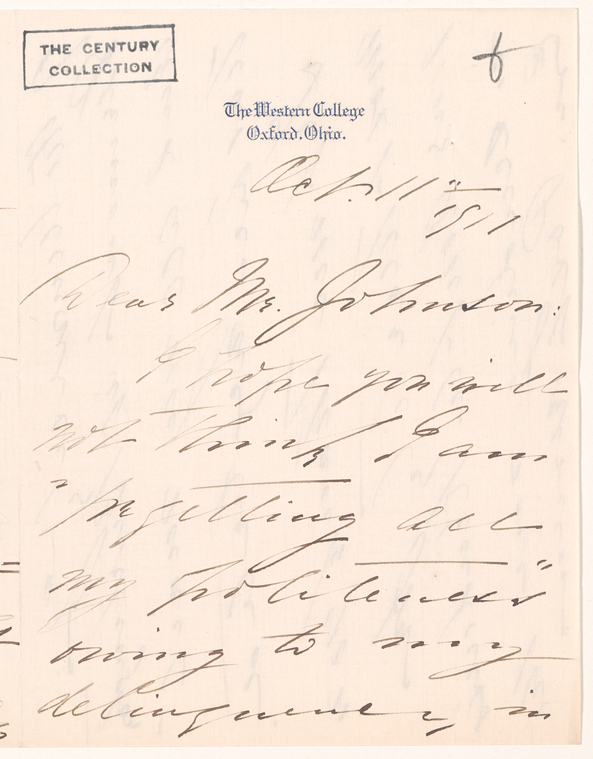 THE CENTURY
COLLECTION
The Western College
Oxford, Ohio.
Oct. 11th
1911
Dear Mr. Johnson:
I hope you will
not think I am
"forgetting all
my politeness"
owing to my
delinquency in